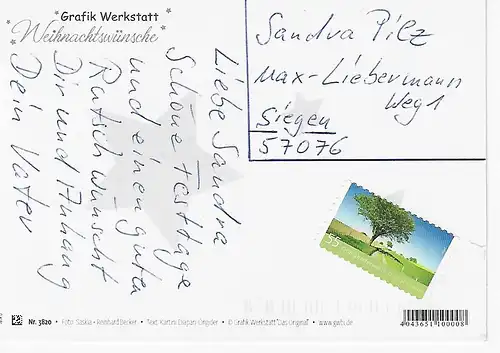 Grafik Werkstatt
Weihnachtswünsche
Liebe Sandra
Schöne Festtage
und einen guten
Rutsch wünscht
Dir und Anhang
Dein Vater
Sandra Pilz
Max-Liebermann
Weg 1
Siegen
57076
55
Nr. 3820 • Foto: Saskia + Reinhard Becker • Text: Kartini Diapari-Öngider • © Grafik Werkstatt "Das Original" • www.gwbi.de
4043651 100008